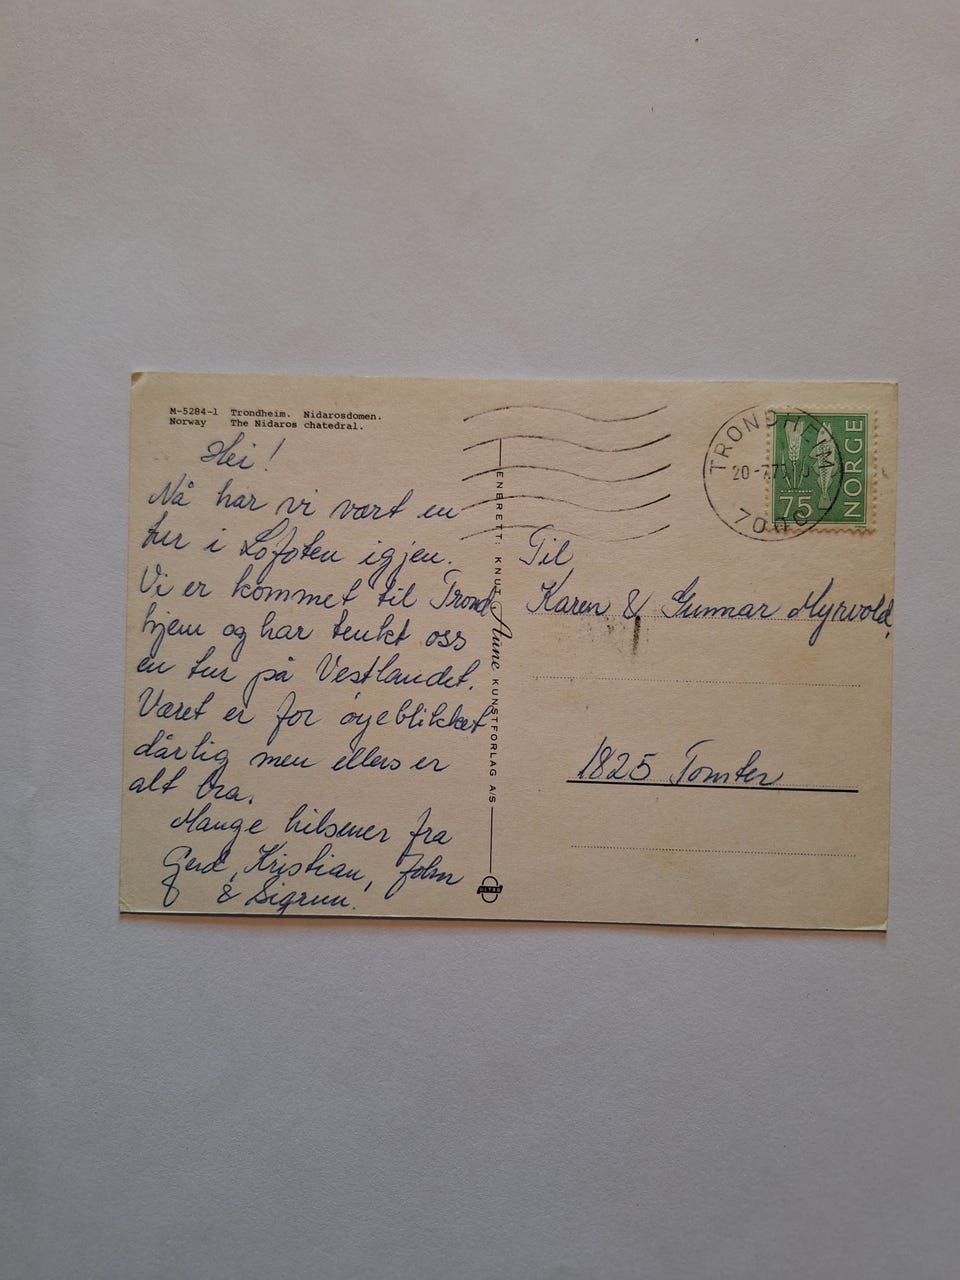 M-5284-1 Trondheim. Nidarosdomen.
Norway The Nidaros chatedral.
Hei!
Nå har vi vært en
tur i Lofoten igjen.
Vi er kommet til Trond
hjem og har tenkt oss
en tur på Vestlandet.
Været er for øyeblikket
dårlig men ellers er
alt bra.
Mange hilsener fra
Gerd, Kristian, John
& Sigrun.
ENERETT: KNUT Aune KUNSTFORLAG A/S
TRONDHEIM
20-7.7
7000
NORGE
75
Til
Karen & Gunnar Myrvold,
1825 Tomter